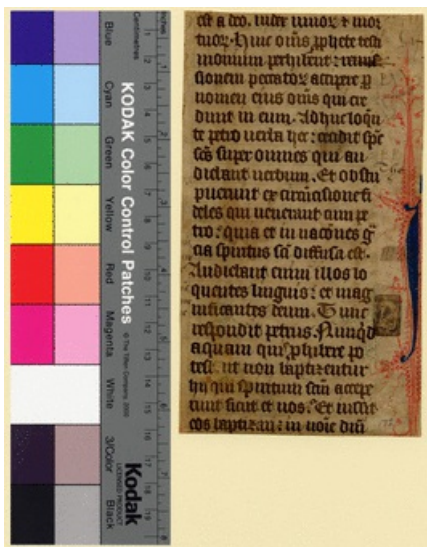 Blue
Cyan
Green
Yellow
Red
Magenta
White
3/Color
Black
KODAK Color Control Patches
© The Tiffen Company, 2000
Kodak
LICENSED PRODUCT
Centimetres
Inches
est a deo. iudex uiuoꝝ ⁊ mor
tuoꝝ. Huic om̄s ꝓphete testi
monium perhibent: remis
sionem peccatoꝝ accipere ꝑ
nomen eius om̄s qui cre
dunt in eum. Adhuc loquē
te petro uerba hec: cecidit sp̄c
sc̄s super omnes qui au
diebant uerbum. Et obstu
puerunt ex circūcisione fi
deles qui uenerant cum pe
tro: quia et in naciones gͣ
cia spiritus sc̄i diffusa est.
Audiebant enim illos lo
quentes linguis: et mag
nificantes deum. Tunc
respondit petrus. Nunqͥd
aquam quis ꝓhibere po
test ut non baptizentur
hii qui spiritum sc̄m accepe
runt sicut et nos. Et iussit
eos baptizari in noīe dn̄i